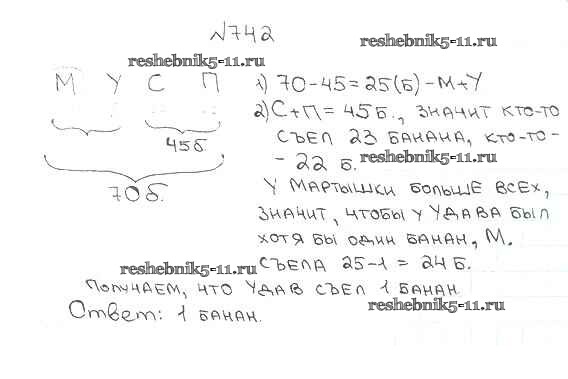 №742
reshebnik5-11.ru
reshebnik5-11.ru
М У С П
45б
70б.
1) 70-45=25(б)-М+У
2) С+П=45б., значит кто-то
съел 23 банана, кто-то-
- 22 б.
reshebnik5-11.ru
У мартышки больше всех,
значит, чтобы у удава был
хотя бы один банан, М.
съела 25-1=24б.
reshebnik5-11.ru
Получаем, что удав съел 1 банан.
reshebnik5-11.ru
Ответ: 1 банан.